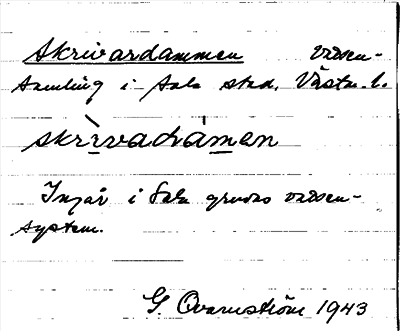 Skrivardammen vatten-
samling i Sala stad, Västm. l.
skrìvadámen
Ingår i Sala gruvas vatten-
system.
G. Qvarnström 1943